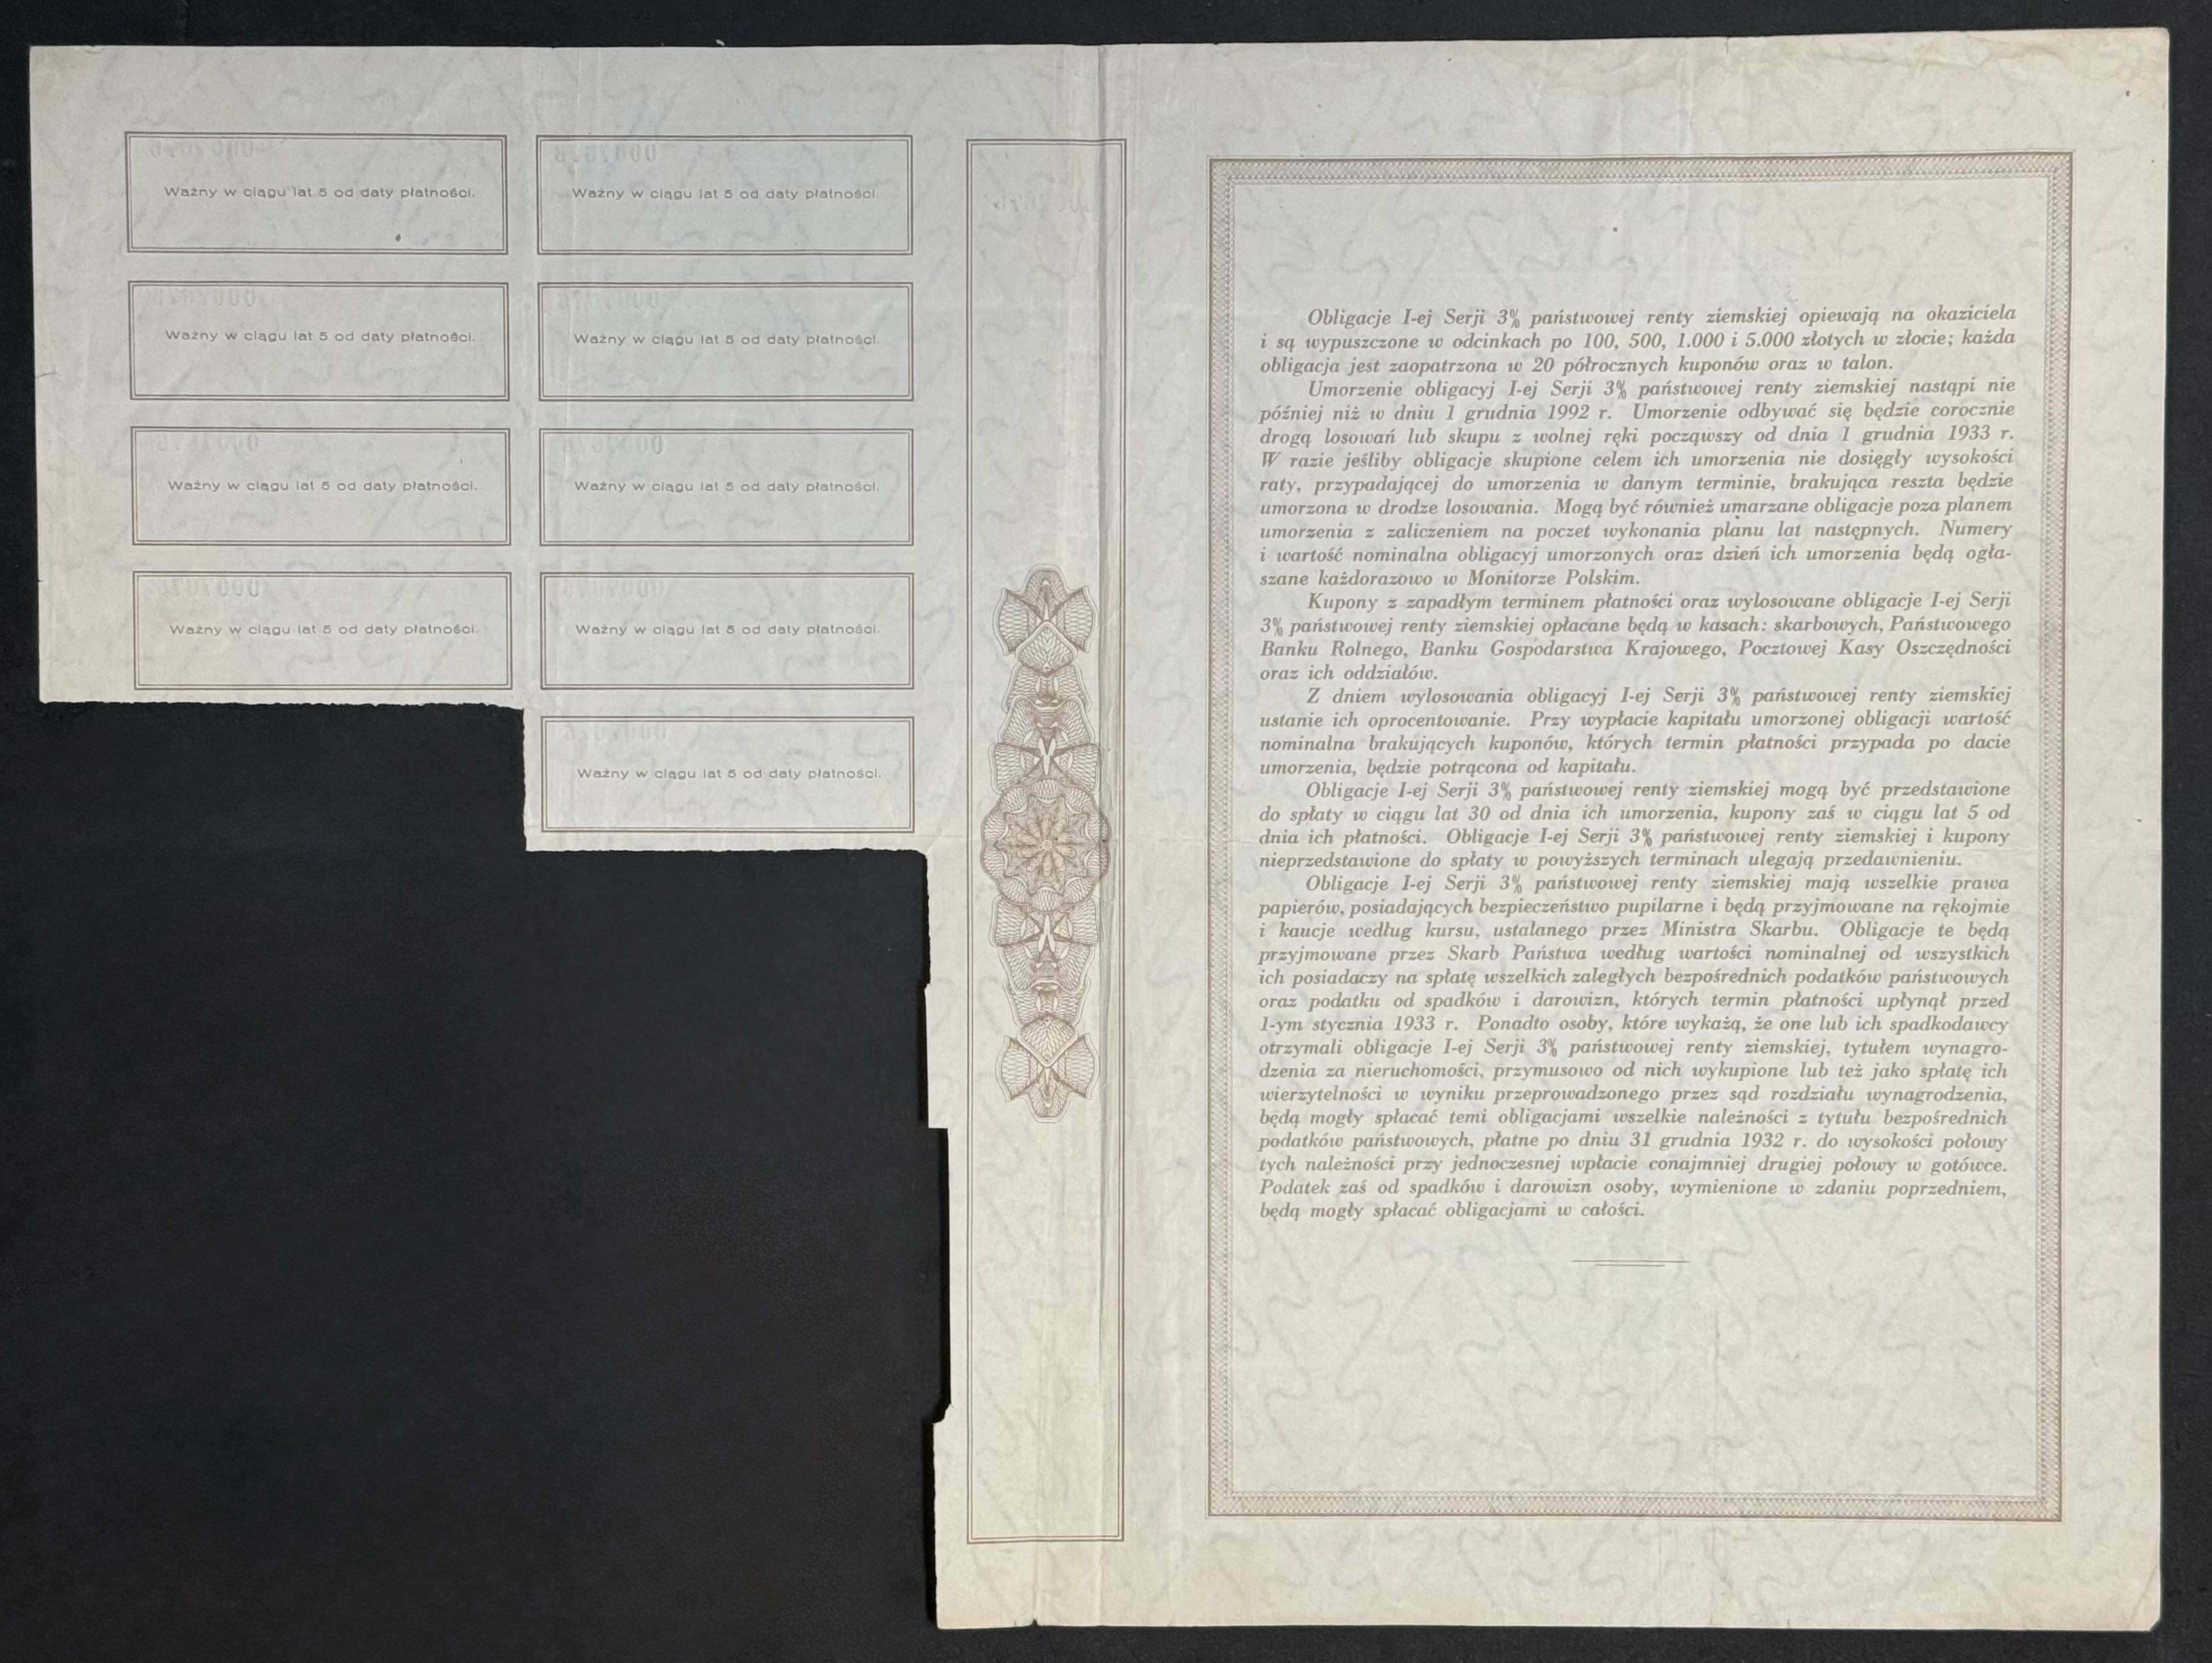 Ważny w ciągu lat 5 od daty płatności.
Ważny w ciągu lat 5 od daty płatności.
Ważny w ciągu lat 5 od daty płatności.
Ważny w ciągu lat 5 od daty płatności.
Ważny w ciągu lat 5 od daty płatności.
Ważny w ciągu lat 5 od daty płatności.
Ważny w ciągu lat 5 od daty płatności.
Ważny w ciągu lat 5 od daty płatności.
Ważny w ciągu lat 5 od daty płatności.
Obligacje I-ej Serji 3% państwowej renty ziemskiej opiewają na okaziciela
i są wypuszczone w odcinkach po 100, 500, 1.000 i 5.000 złotych w złocie; każda
obligacja jest zaopatrzona w 20 półrocznych kuponów oraz w talon.
Umorzenie obligacyj I-ej Serji 3% państwowej renty ziemskiej nastąpi nie
później niż w dniu 1 grudnia 1992 r. Umorzenie odbywać się będzie corocznie
drogą losowań lub skupu z wolnej ręki począwszy od dnia 1 grudnia 1933 r.
W razie jeśliby obligacje skupione celem ich umorzenia nie dosięgły wysokości
raty, przypadającej do umorzenia w danym terminie, brakująca reszta będzie
umorzona w drodze losowania. Mogą być również umarzane obligacje poza planem
umorzenia z zaliczeniem na poczet wykonania planu lat następnych. Numery
i wartość nominalna obligacyj umorzonych oraz dzień ich umorzenia będą ogła-
szane każdorazowo w Monitorze Polskim.
Kupony z zapadłym terminem płatności oraz wylosowane obligacje I-ej Serji
3% państwowej renty ziemskiej opłacane będą w kasach: skarbowych, Państwowego
Banku Rolnego, Banku Gospodarstwa Krajowego, Pocztowej Kasy Oszczędności
oraz ich oddziałów.
Z dniem wylosowania obligacyj I-ej Serji 3% państwowej renty ziemskiej
ustanie ich oprocentowanie. Przy wypłacie kapitału umorzonej obligacji wartość
nominalna brakujących kuponów, których termin płatności przypada po dacie
umorzenia, będzie potrącona od kapitału.
Obligacje I-ej Serji 3% państwowej renty ziemskiej mogą być przedstawione
do spłaty w ciągu lat 30 od dnia ich umorzenia, kupony zaś w ciągu lat 5 od
dnia ich płatności. Obligacje I-ej Serji 3% państwowej renty ziemskiej i kupony
nieprzedstawione do spłaty w powyższych terminach ulegają przedawnieniu.
Obligacje I-ej Serji 3% państwowej renty ziemskiej mają wszelkie prawa
papierów, posiadających bezpieczeństwo pupilarne i będą przyjmowane na rękojmie
i kaucje według kursu, ustalanego przez Ministra Skarbu. Obligacje te będą
przyjmowane przez Skarb Państwa według wartości nominalnej od wszystkich
ich posiadaczy na spłatę wszelkich zaległych bezpośrednich podatków państwowych
oraz podatku od spadków i darowizn, których termin płatności upłynął przed
1-ym stycznia 1933 r. Ponadto osoby, które wykażą, że one lub ich spadkodawcy
otrzymali obligacje I-ej Serji 3% państwowej renty ziemskiej, tytułem wynagro-
dzenia za nieruchomości, przymusowo od nich wykupione lub też jako spłatę ich
wierzytelności w wyniku przeprowadzonego przez sąd rozdziału wynagrodzenia,
będą mogły spłacać temi obligacjami wszelkie należności z tytułu bezpośrednich
podatków państwowych, płatne po dniu 31 grudnia 1932 r. do wysokości połowy
tych należności przy jednoczesnej wpłacie conajmniej drugiej połowy w gotówce.
Podatek zaś od spadków i darowizn osoby, wymienione w zdaniu poprzedniem,
będą mogły spłacać obligacjami w całości.